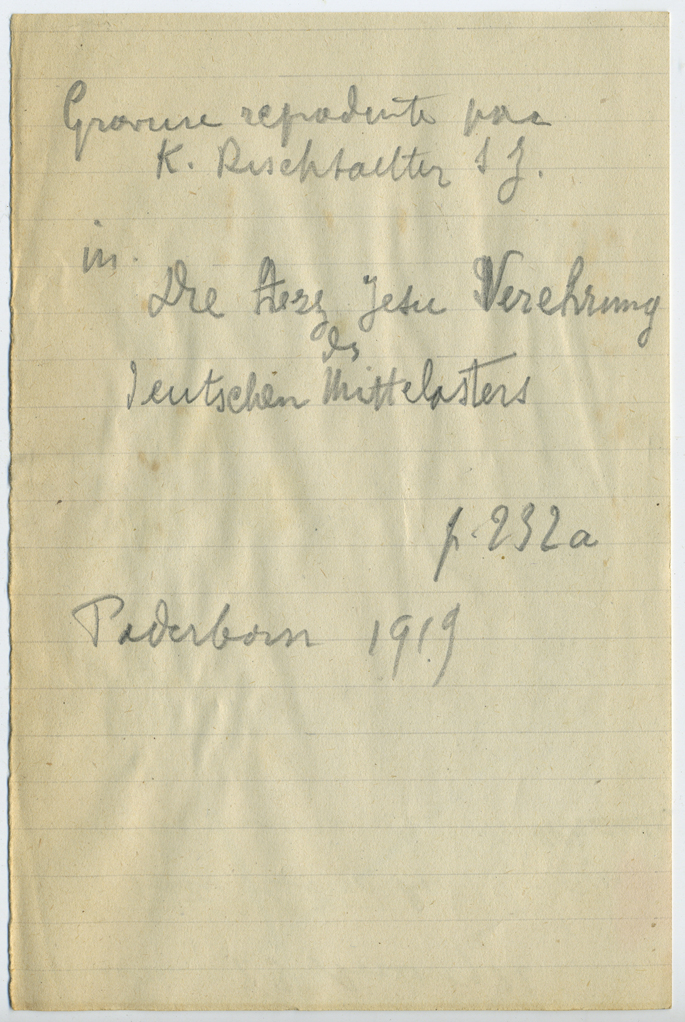 Gravure reproduite par
K. Rischtaetter S J.
in.
Die Herz Jesu Verehrung
des
deutschen Mittelasters
p. 232a
Paderborn 1919